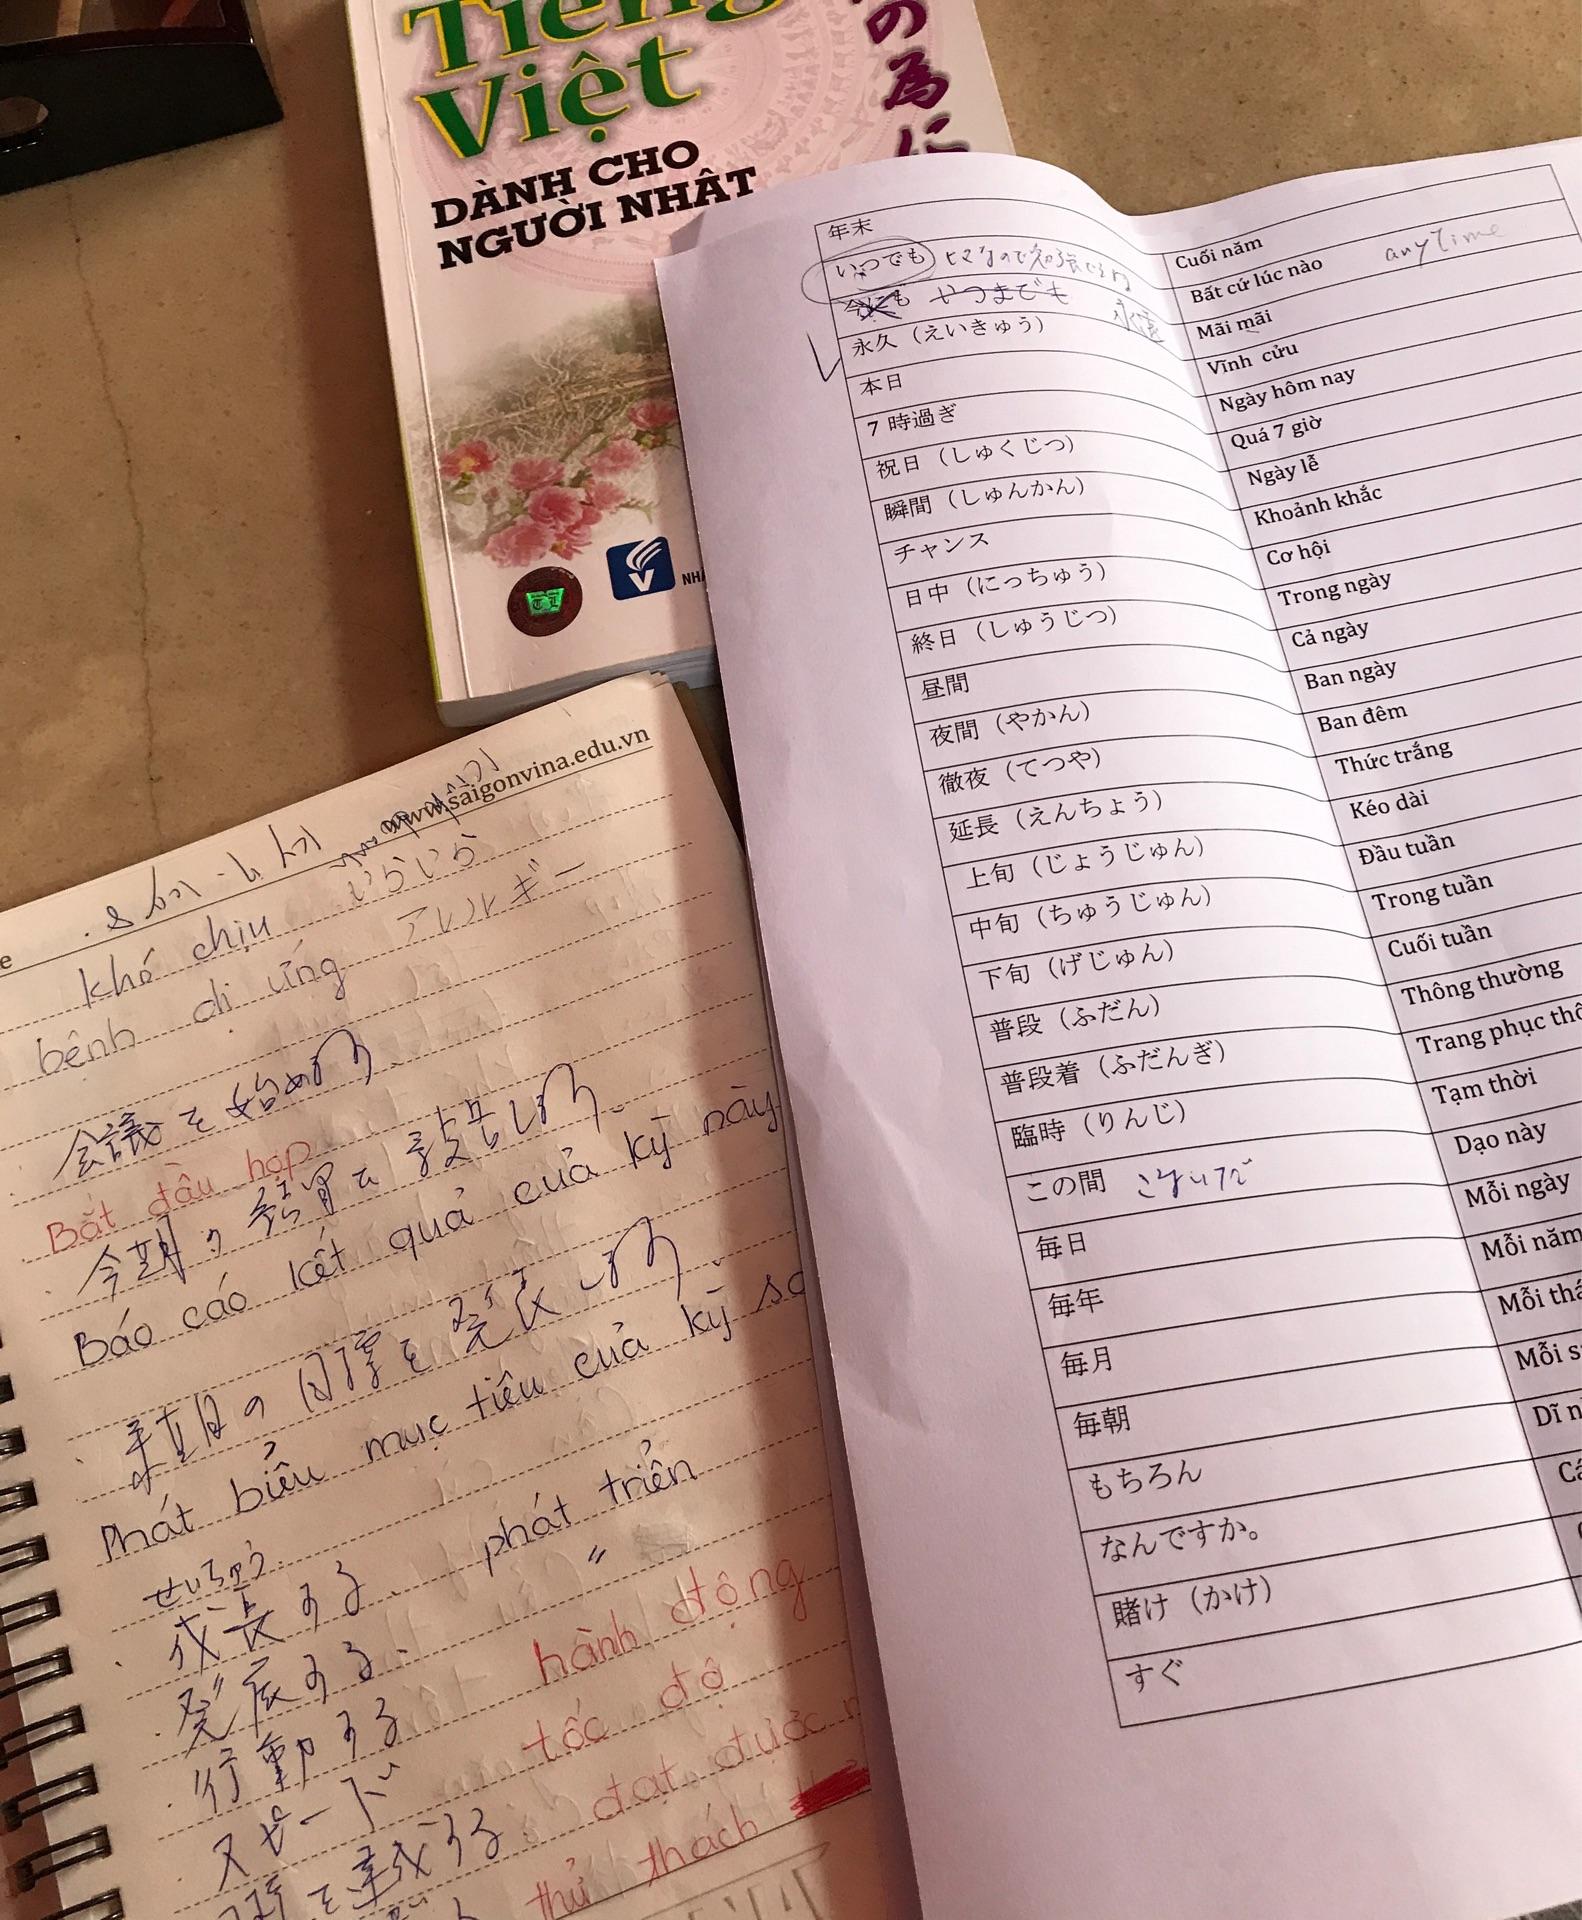 Tiếng
Việt
DÀNH CHO
NGƯỜI NHẬT
の為に
NHÀ
年末 Cuối năm
いつでも ヒマなので勉強できるね Bất cứ lúc nào anytime
いつまでも 永遠 Mãi mãi
永久（えいきゅう） Vĩnh cửu
本日 Ngày hôm nay
7 時過ぎ Quá 7 giờ
祝日（しゅくじつ） Ngày lễ
瞬間（しゅんかん） Khoảnh khắc
チャンス Cơ hội
日中（にっちゅう） Trong ngày
終日（しゅうじつ） Cả ngày
昼間 Ban ngày
夜間（やかん） Ban đêm
徹夜（てつや） Thức trắng
延長（えんちょう） Kéo dài
上旬（じょうじゅん） Đầu tuần
中旬（ちゅうじゅん） Trong tuần
下旬（げじゅん） Cuối tuần
普段（ふだん） Thông thường
普段着（ふだんぎ） Trang phục
臨時（りんじ） Tạm thời
この間 こないだ Dạo này
毎日 Mỗi ngày
毎年 Mỗi năm
毎月 Mỗi
毎朝 Mỗi
もちろん Dĩ
なんですか。
賭け（かけ）
すぐ
www.saigonvina.edu.vn
khó chịu いらいら
bệnh dị ứng アレルギー
会議を始める
Bắt đầu họp
今期の結果を報告します
Báo cáo kết quả của kỳ này
来期の目標を発表します
Phát biểu mục tiêu của kỳ
せいちょう
成長する phát triển
発展する 〃
行動する hành động
スピード tốc độ
を達成する đạt được
thử thách